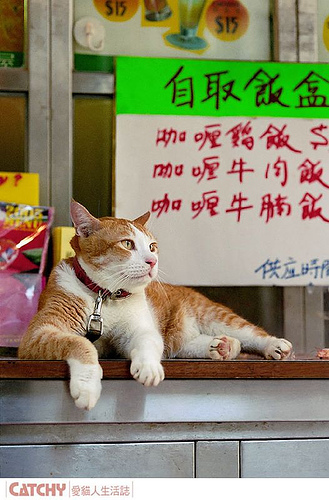 $15
$15
自取飯盒
咖喱鷄飯 $
咖喱牛肉飯
咖喱牛腩飯
供应時間
CATCHY 愛貓人生活誌